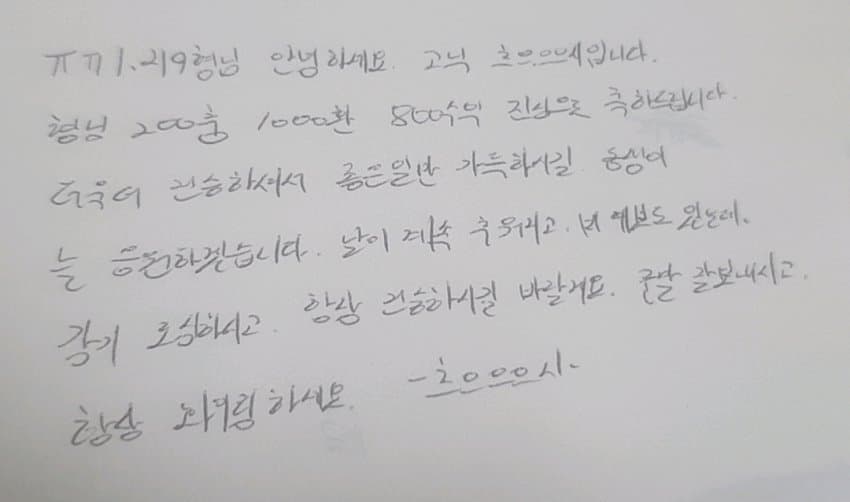 ㅠㄲ1.219형님 안녕하세요. 고닉 흐으으시입니다.
형님 200충 1000환 800수익 진심으로 축하드립니다.
더욱더 건승하셔서 좋은일만 가득하시길 항상
늘 응원하겠습니다. 날이 계속 추워지고. 비 예보도 있는데.
감기 조심하시고. 항상 건승하시길 바랄게요. 연말 잘보내시고.
항상 하세요. -흐으으으시-